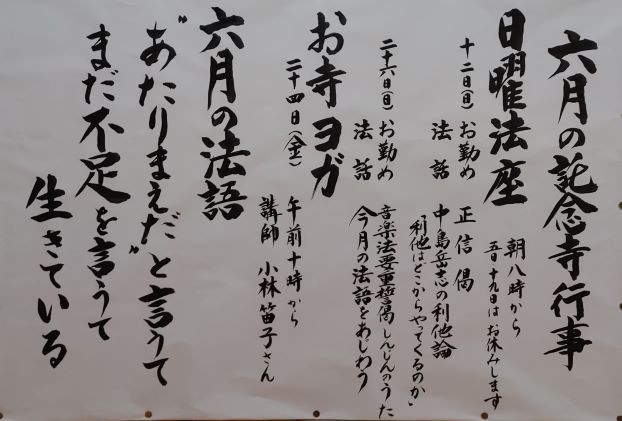 六月の託念寺行事
日曜法座
朝八時から
五日・十九日はお休みします
十二日(日) お勤め 正信偈
法話 中島岳志の利他論
「利他はどこからやってくるのか」
二十六日(日) お勤め 音楽法要重誓偈 しんじんのうた
法話 今月の法語をあじわう
お寺ヨガ
二十四日(金) 午前十時から
講師 小林笛子さん
六月の法語
“あたりまえだ”と言うて
まだ不足を言うて
生きている